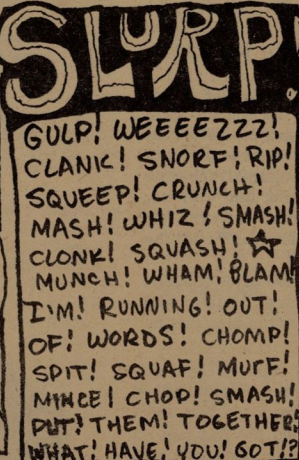 SLURP!
GULP! WEEEEZZZ!
CLANK! SNORF! RIP!
SQUEEP! CRUNCH!
MASH! WHIZ! SMASH!
CLONK! SQUASH!
MUNCH! WHAM! BLAM!
I'M! RUNNING! OUT!
OF! WORDS! CHOMP!
SPIT! SQUAF! MURF!
MINCE! CHOP! SMASH!
PUT! THEM! TOGETHER!
WHAT! HAVE! YOU! GOT!?